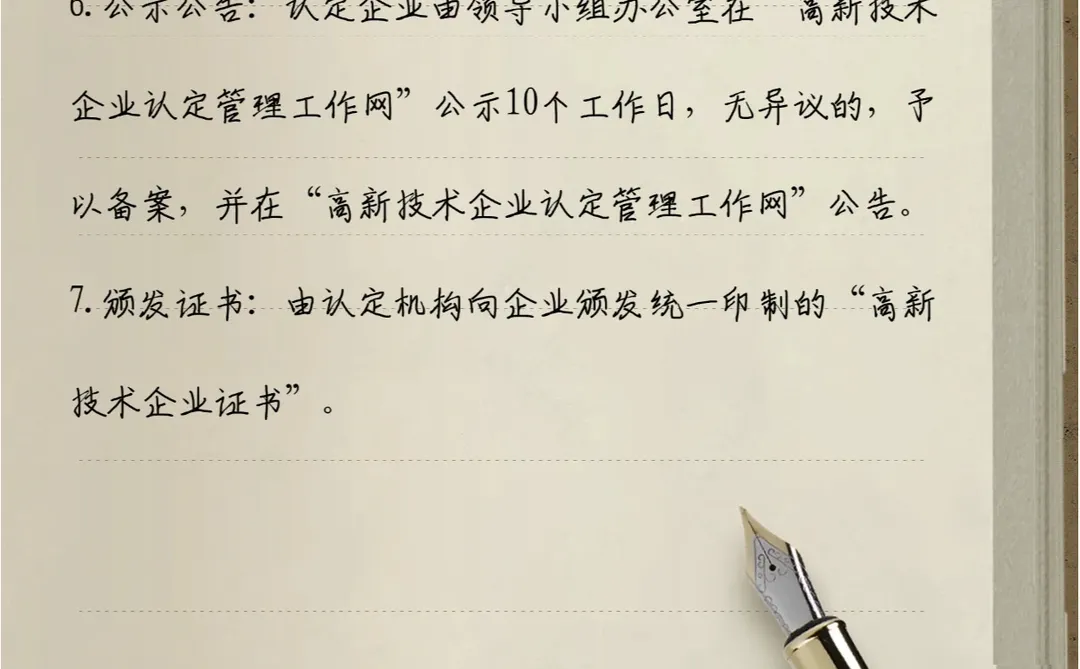 6. 公示公告：认定企业由领导小组办公室在“高新技术
企业认定管理工作网”公示10个工作日，无异议的，予
以备案，并在“高新技术企业认定管理工作网”公告。
7. 颁发证书：由认定机构向企业颁发统一印制的“高新
技术企业证书”。